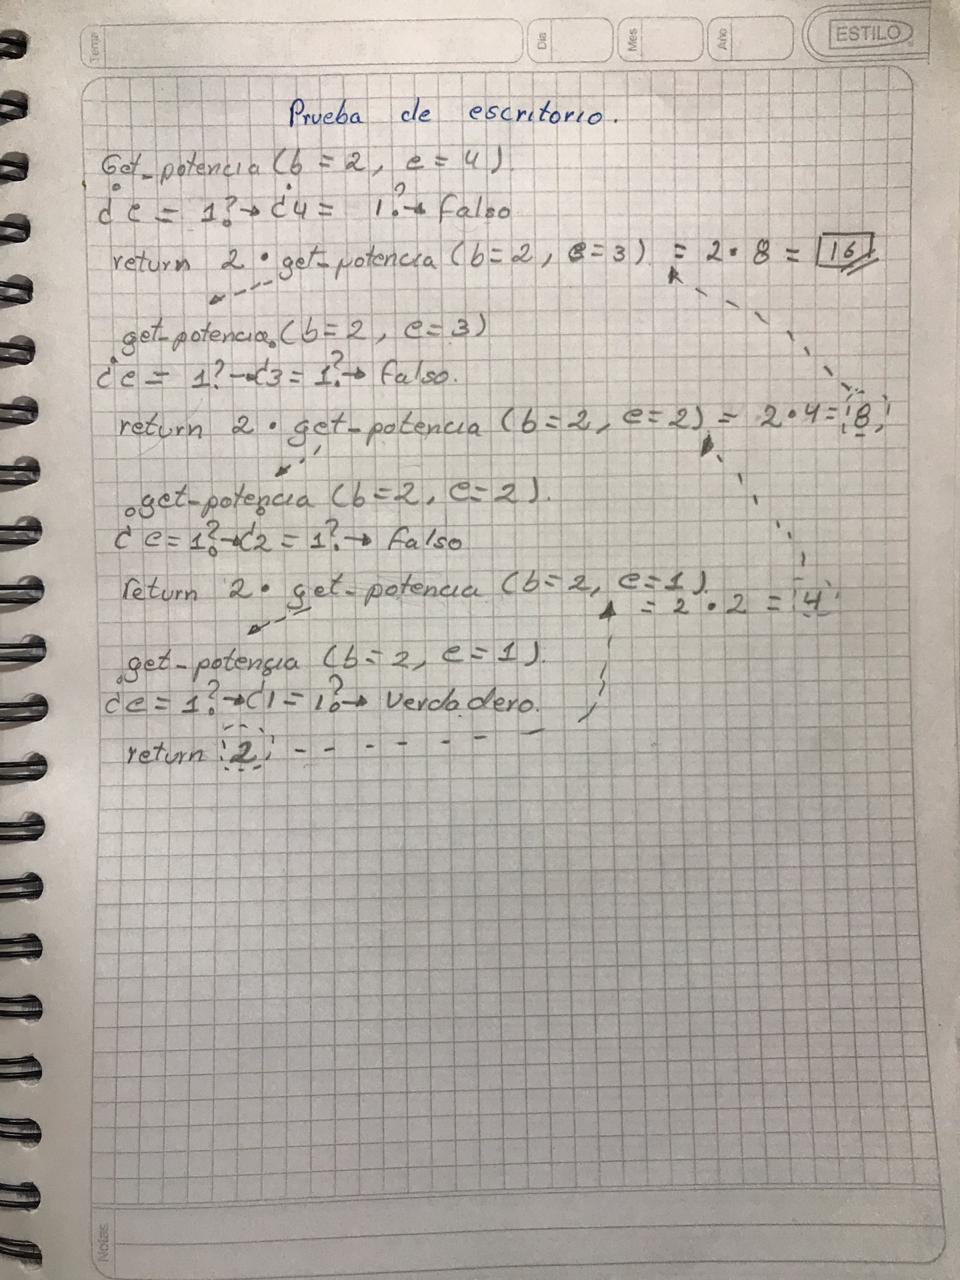 Tema
Dia
Mes
Año
ESTILO
Prueba de escritorio.
Get_potencia (b = 2, e = 4).
¿e = 1? → ¿4 = 1? → falso
return 2 • get_potencia (b=2, e=3) = 2 • 8 = 16
get_potencia (b=2, e=3)
¿e = 1? → ¿3 = 1? → falso.
return 2 • get_potencia (b=2, e=2) = 2 • 4 = 8
get_potencia (b=2, e=2).
¿e = 1? → ¿2 = 1? → falso
return 2 • get_potencia (b=2, e=1).
= 2 • 2 = 4
get_potencia (b=2, e=1).
¿e = 1? → ¿1 = 1? → Verdadero.
return 2
Notas